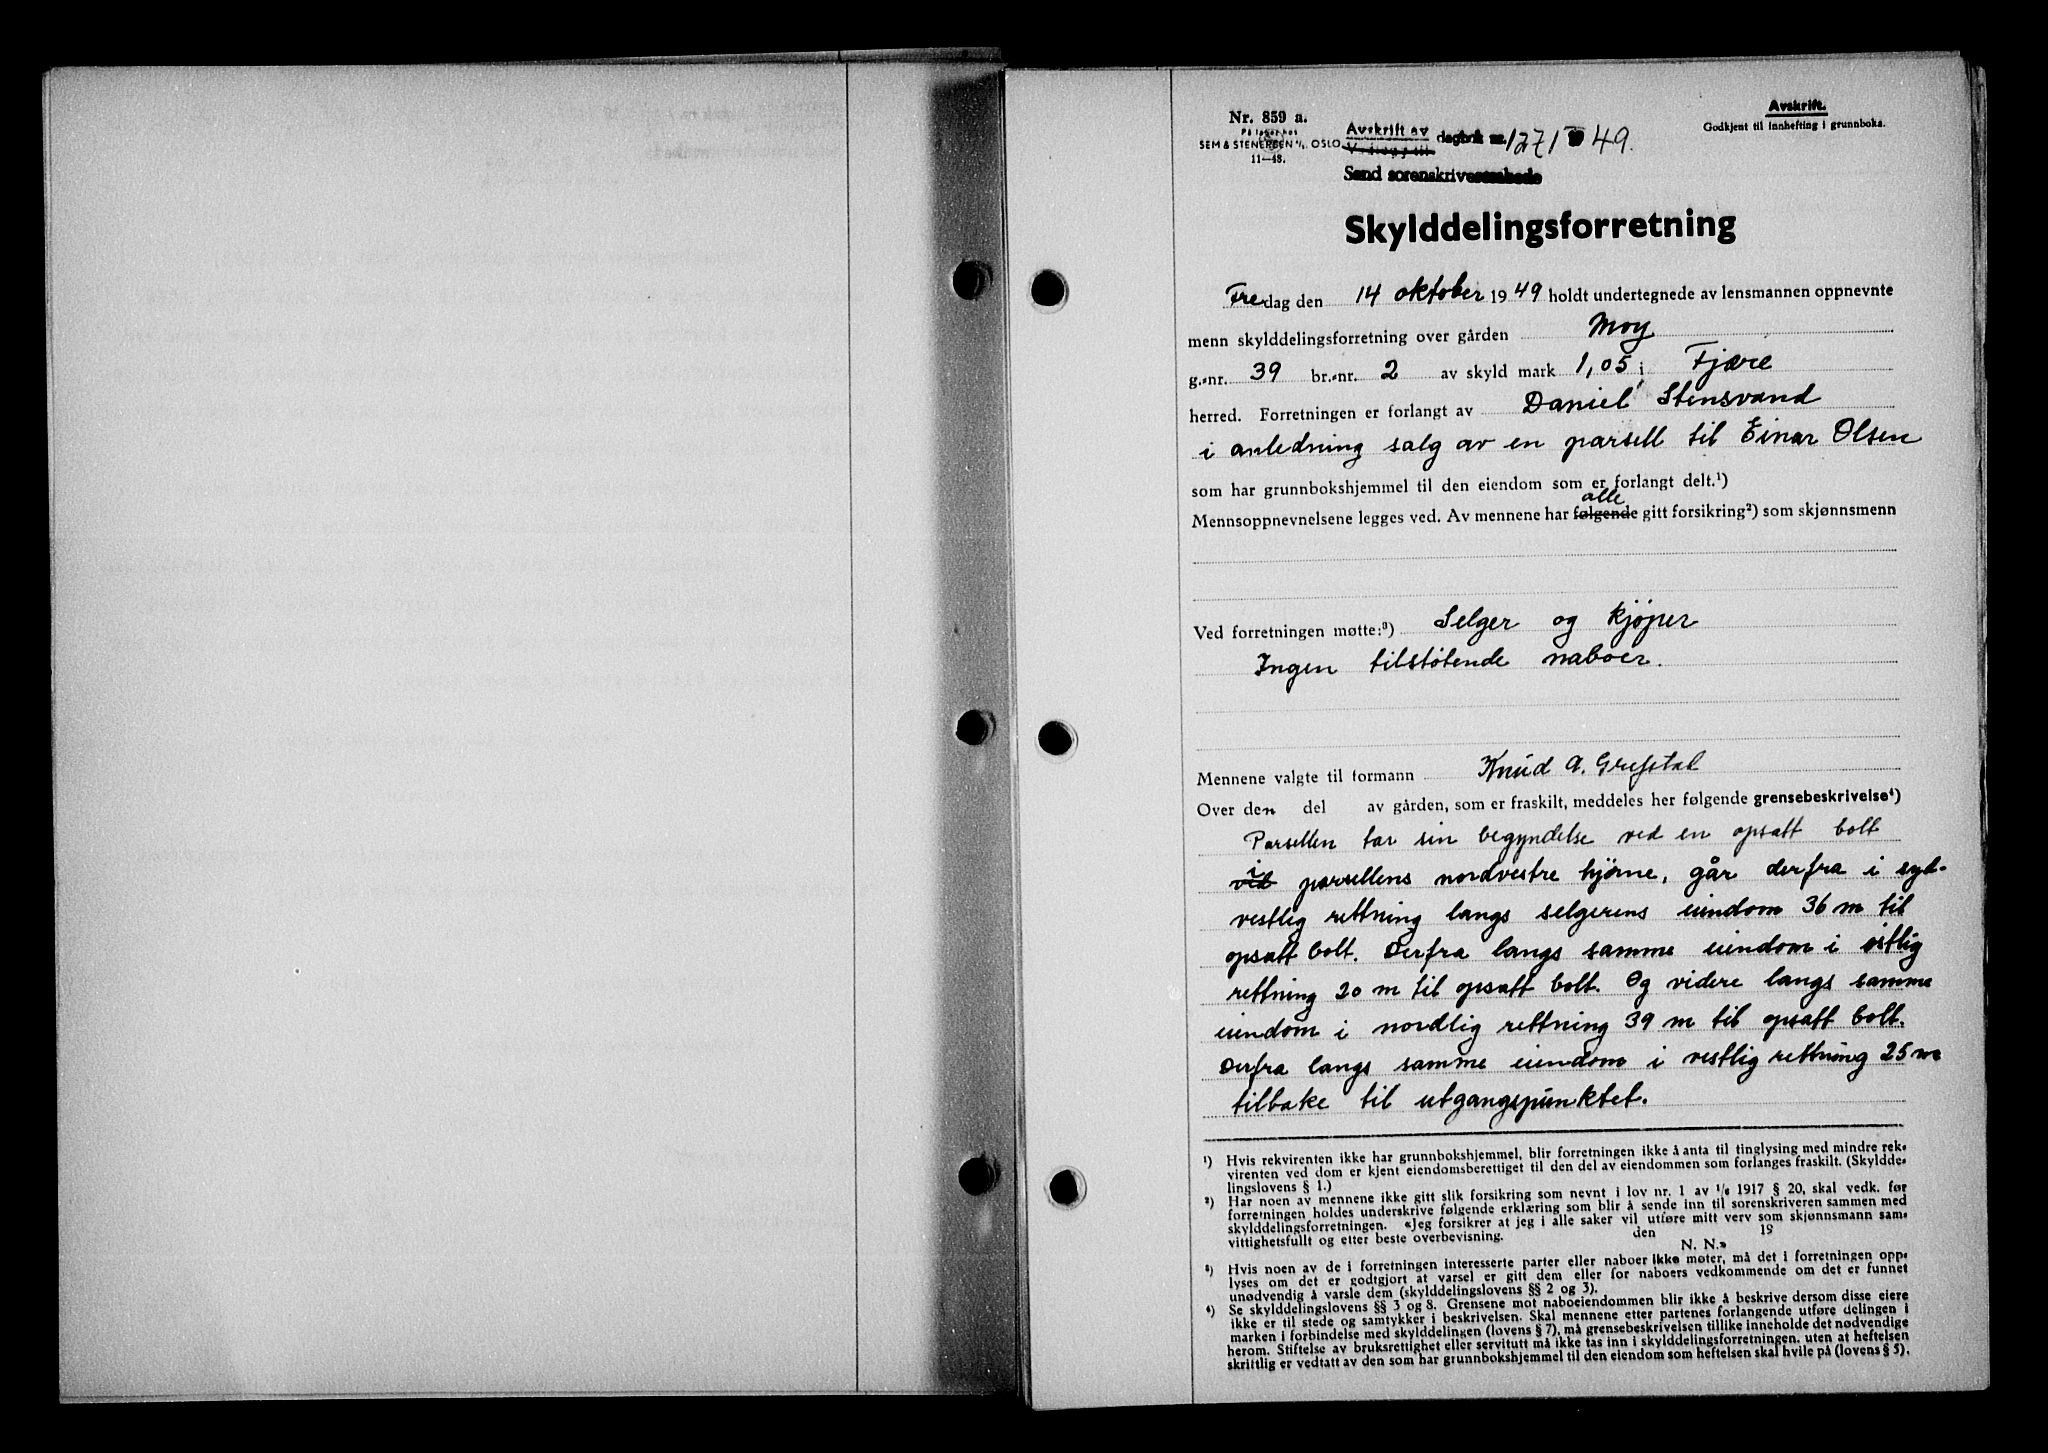 Nr. 859 a.
På lager hos
SEM & STENERSEN A/S, OSLO
11—48.
Avskrift av
Vedlegg til
dagbok nr. 1271 49.
Sand sorenskriverembede
Avskrift.
Godkjent til innhefting i grunnboka.
Skylddelingsforretning
Fredag den 14 oktober 1949 holdt undertegnede av lensmannen oppnevnte
menn skylddelingsforretning over gården Moy
g.-nr. 39 br.-nr. 2 av skyld mark 1,05 i Fjære
herred. Forretningen er forlangt av Daniel Stensvand
i anledning salg av en parsell til Einar Olsen
som har grunnbokshjemmel til den eiendom som er forlangt delt.¹)
alle
Mennsoppnevnelsene legges ved. Av mennene har følgende gitt forsikring²) som skjønnsmenn
Ved forretningen møtte:³) Selger og kjøper
Ingen tilstøtende naboer.
Mennene valgte til formann Knud A. Grefstal
Over den del av gården, som er fraskilt, meddeles her følgende grensebeskrivelse⁴)
Parsellen tar sin begyndelse ved en opsatt bolt
i
ved parsellens nordvestre hjørne, går derfra i syd-
vestlig rettning langs selgerens eiendom 36 m til
opsatt bolt. Derfra langs samme eiendom i østlig
rettning 20 m til opsatt bolt. Og videre langs samme
eiendom i nordlig rettning 39 m til opsatt bolt.
Derfra langs samme eiendom i vestlig rettning 25 m
tilbake til utgangspunktet.
¹) Hvis rekvirenten ikke har grunnbokshjemmel, blir forretningen ikke å anta til tinglysing med mindre rek-
virenten ved dom er kjent eiendomsberettiget til den del av eiendommen som forlanges fraskilt. (Skyldde-
lingslovens § 1.)
²) Har noen av mennene ikke gitt slik forsikring som nevnt i lov nr. 1 av 1/6 1917 § 20, skal vedk. før
forretningen holdes underskrive følgende erklæring som blir å sende inn til sorenskriveren sammen med
skylddelingsforretningen. «Jeg forsikrer at jeg i alle saker vil utføre mitt verv som skjønnsmann sam-
vittighetsfullt og etter beste overbevisning. den 19
N. N.»
³) Hvis noen av de i forretningen interesserte parter eller naboer ikke møter, må det i forretningen opp-
lyses om det er godtgjort at varsel er gitt dem eller for naboers vedkommende om det er funnet
unødvendig å varsle dem (skylddelingslovens §§ 2 og 3).
⁴) Se skylddelingslovens §§ 3 og 8. Grensene mot naboeiendommen blir ikke å beskrive dersom disse eiere
ikke er til stede og samtykker i beskrivelsen. Skal mennene etter partenes forlangende utføre delingen i
marken i forbindelse med skylddelingen (lovens § 7), må grensebeskrivelsen tillike inneholde det nødvendige
herom. Stiftelse av bruksrettighet eller servitutt må ikke tas inn i skylddelingsforretningen, uten at heftelsen
skriftlig er vedtatt av den som har grunnbokshjemmel til den eiendom som heftelsen skal hvile på (lovens § 5).